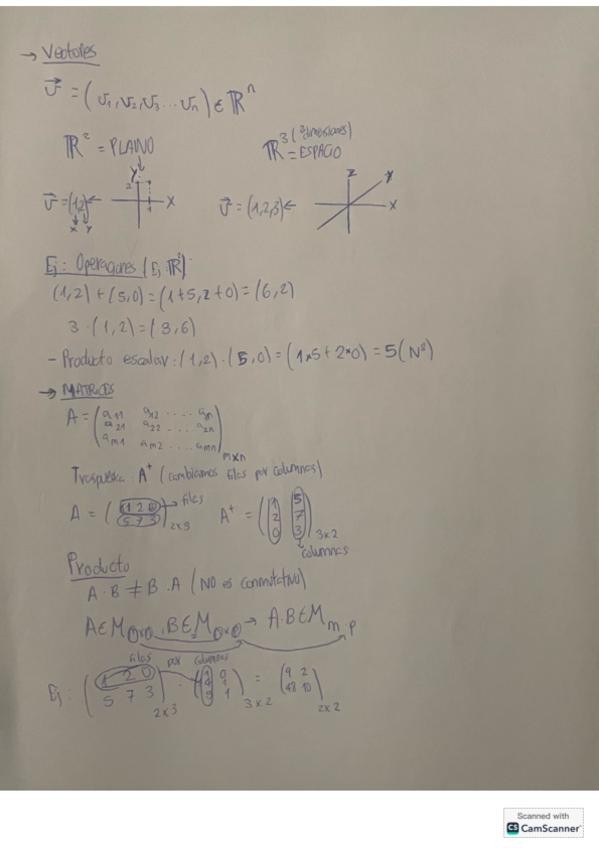 → Vectores
v⃗ = (v₁, v₂, v₃ ... vₙ) ∈ ℝⁿ
ℝ² = PLANO
ℝ³ (3 dimensiones) = ESPACIO
v⃗ = (1,2) ←
x y
Y
2
1
X
v⃗ = (1,2,3) ←
Z
Y
X
Ej: Operaciones (Ej ℝ²)
(1,2) + (5,0) = (1+5, 2+0) = (6,2)
3 · (1,2) = (3,6)
- Producto escalar: (1,2) · (5,0) = (1*5 + 2*0) = 5 (Nº)
→ MATRICES
A = (a₁₁ a₁₂ .... a₁ₙ
a₂₁ a₂₂ .... a₂ₙ
aₘ₁ aₘ₂ .... aₘₙ) m×n
Traspuesta: Aᵗ (cambiamos filas por columnas)
A = (1 2 0 → filas
5 7 3) 2x3
Aᵗ = (1 5
2 7
0 3) 3x2
columnas
Producto
A · B ≠ B · A (NO es conmutativo)
A∈M , B∈M → A·B∈M m·p
filas por columnas
Ej: (1 2 0
5 7 3) 2x3 · ( 0
1
1) 3x2 = (9 2
48 10) 2x2
Scanned with
CS CamScanner